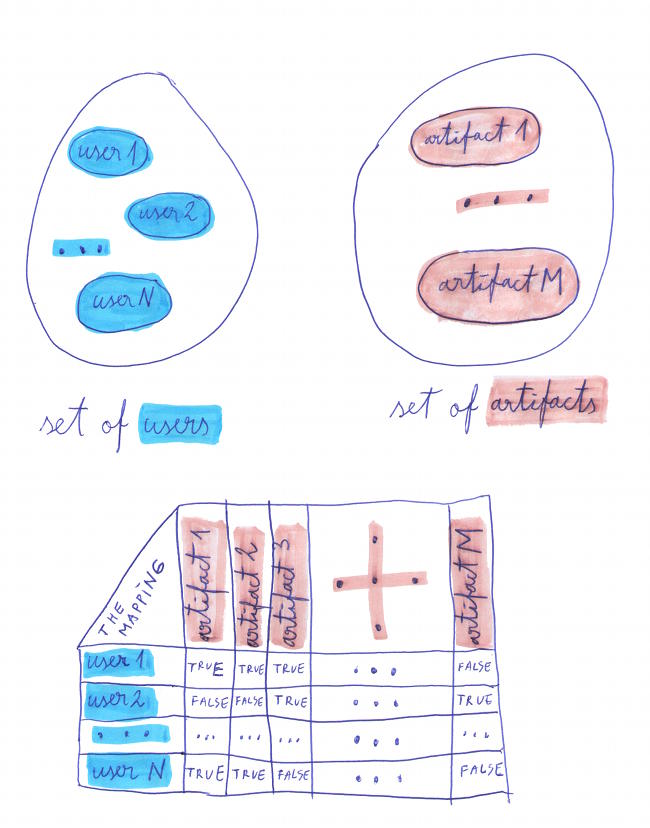 user 1
user 2
...
user N
set of users
artifact 1
...
artifact M
set of artifacts
THE MAPPING
artifact 1 artifact 2 artifact 3 artifact M
user 1 TRUE TRUE TRUE ... FALSE
user 2 FALSE FALSE TRUE ... TRUE
... ... ... ... ... ...
user N TRUE TRUE FALSE ... FALSE